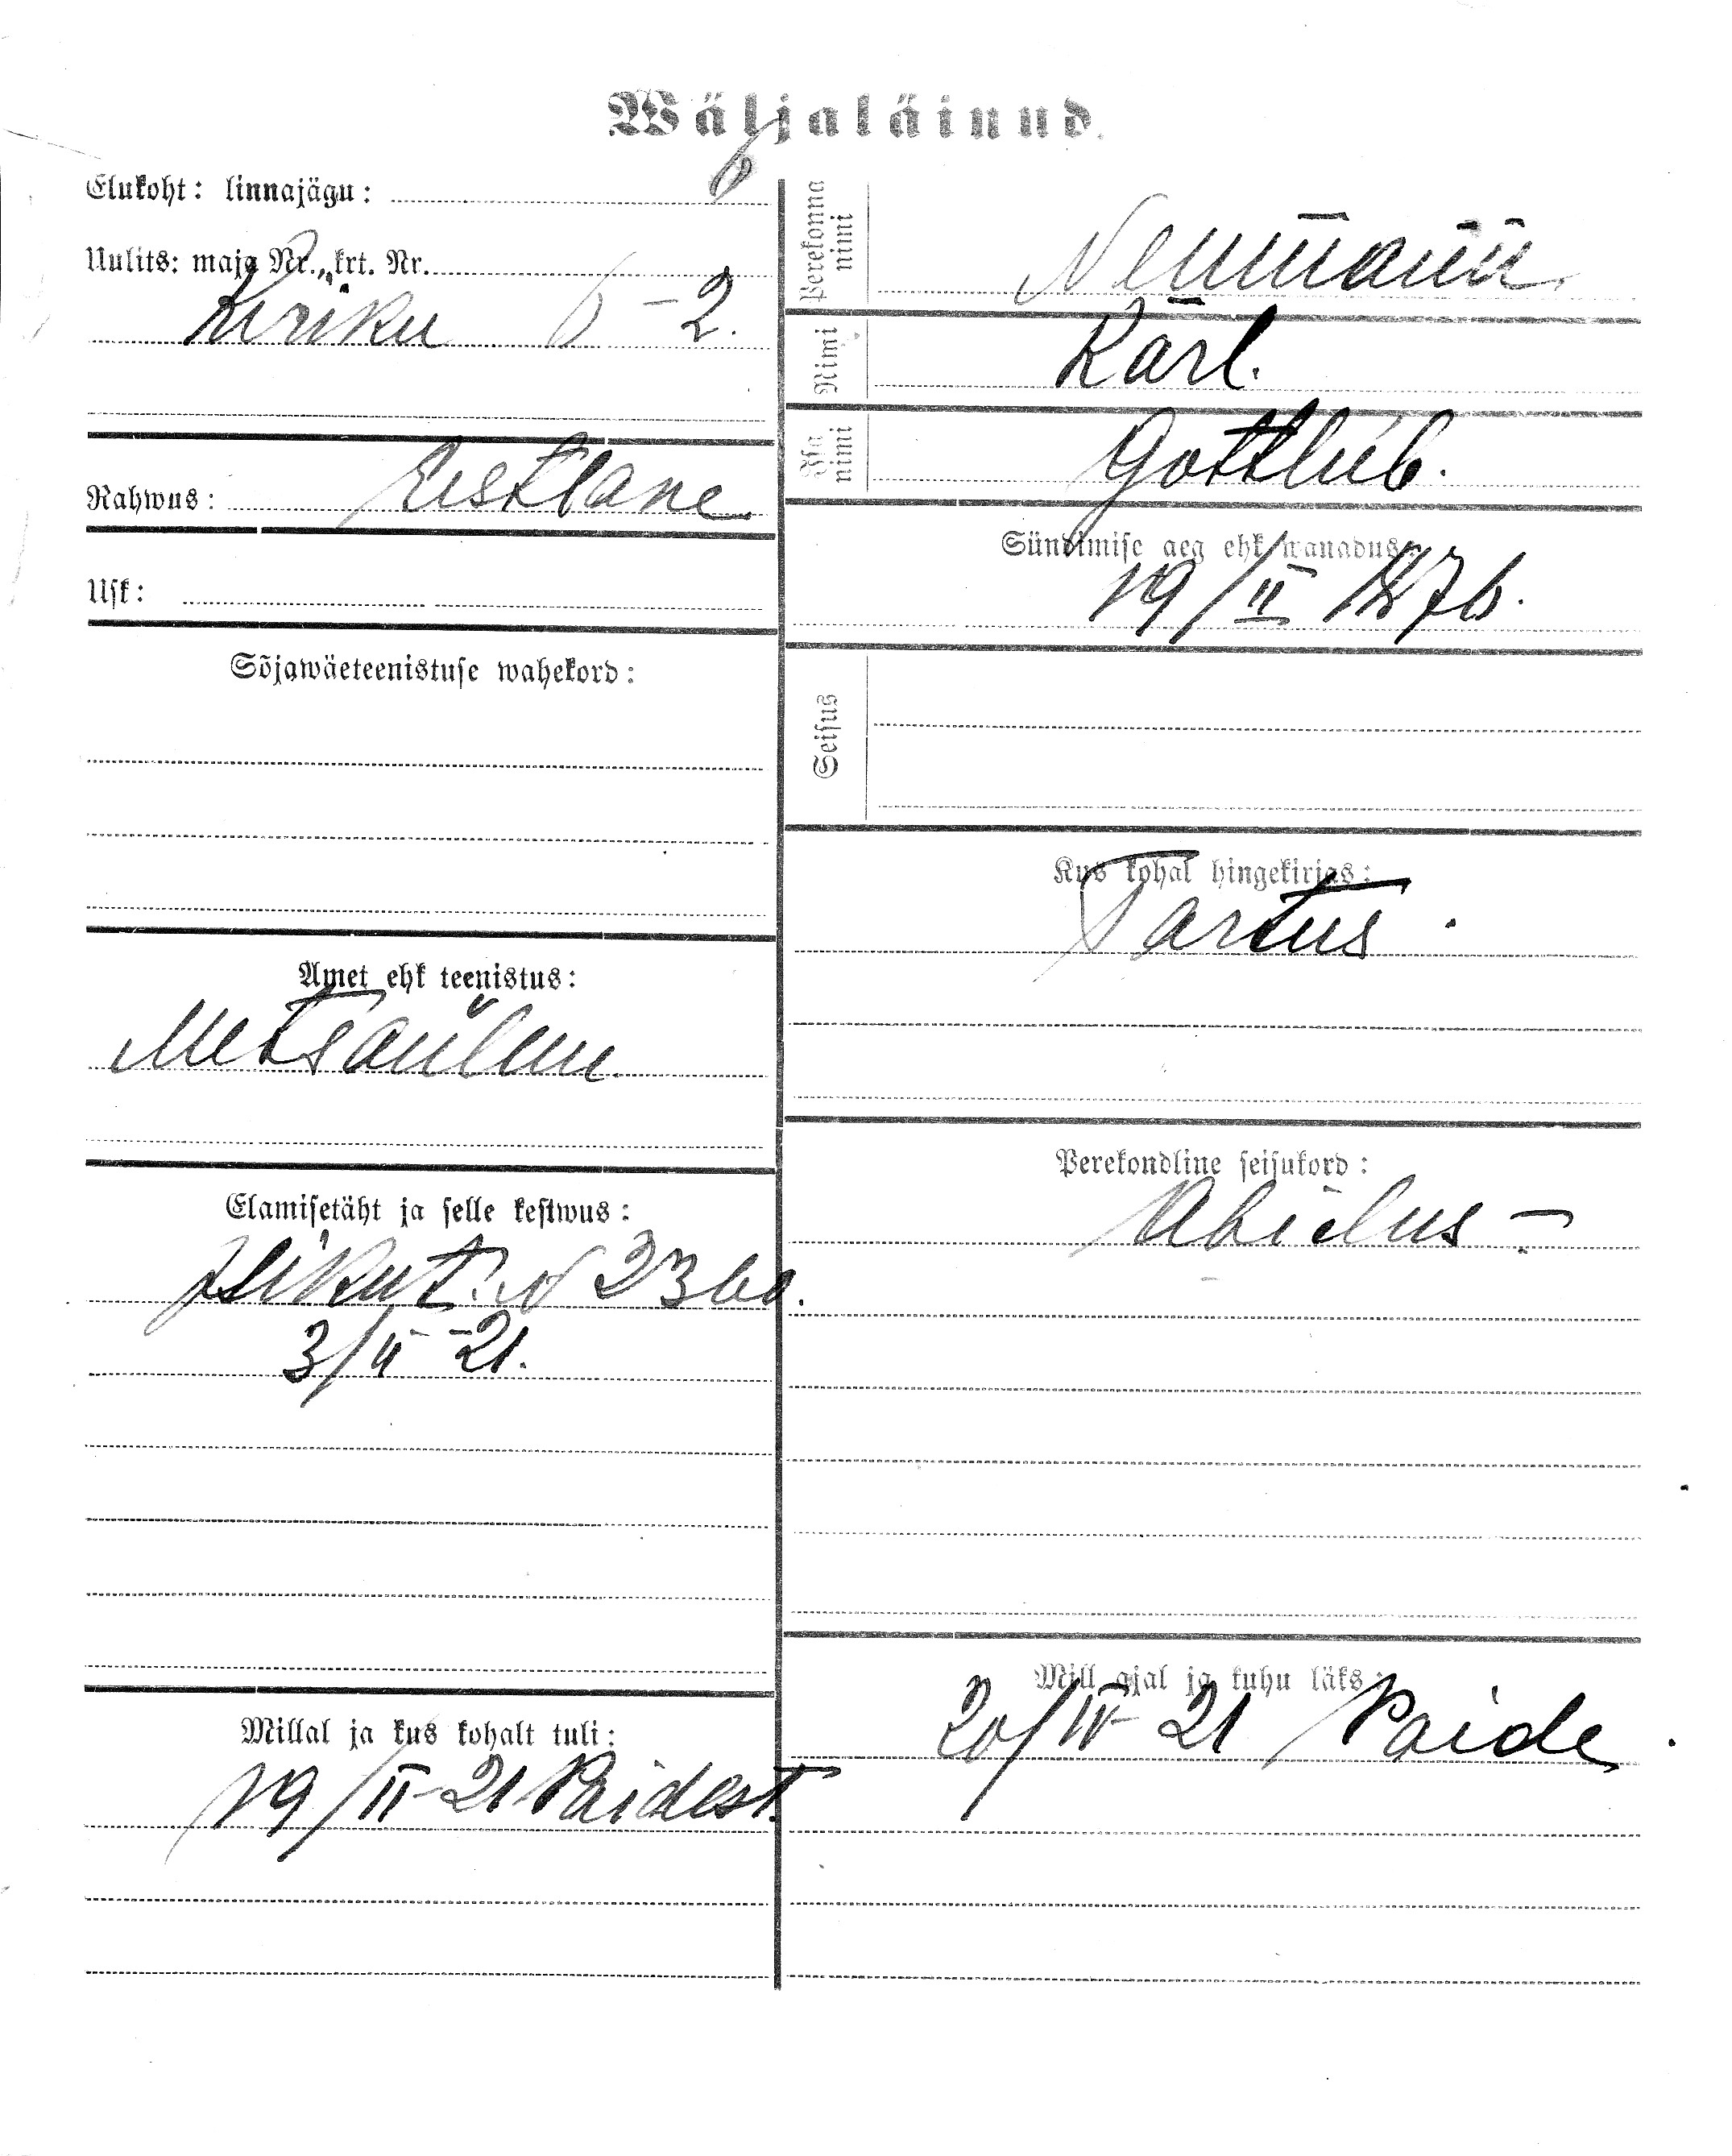 Wäljaläinud.
Elukoht: linnajägu: 6
Uulits: maja Nr., krt. Nr.
Kiriku 6-2.
Rahwus: Eestlane
Usk:
Sõjawäeteenistuse wahekord:
Amet ehk teenistus:
Metsaülem.
Elamisetäht ja selle kestwus:
Isikut. N 2360.
3/II-21.
Millal ja kus kohalt tuli:
19/II-21 Paidest.
Perekonna nimi
Neumann.
Nimi
Karl.
Isa nimi
Gottlieb.
Sündimise aeg ehk wanadus:
19/II 1876.
Seisus
Kus kohal hingekirjas:
Tartus.
Perekondline seisukord:
Abielus -
Mill ajal ja kuhu läks:
20/IV 21 Paide.